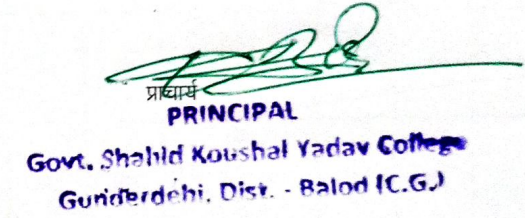 प्राचार्य
PRINCIPAL
Govt. Shahid Koushal Yadav College
Gunderdehi, Dist. - Balod (C.G.)